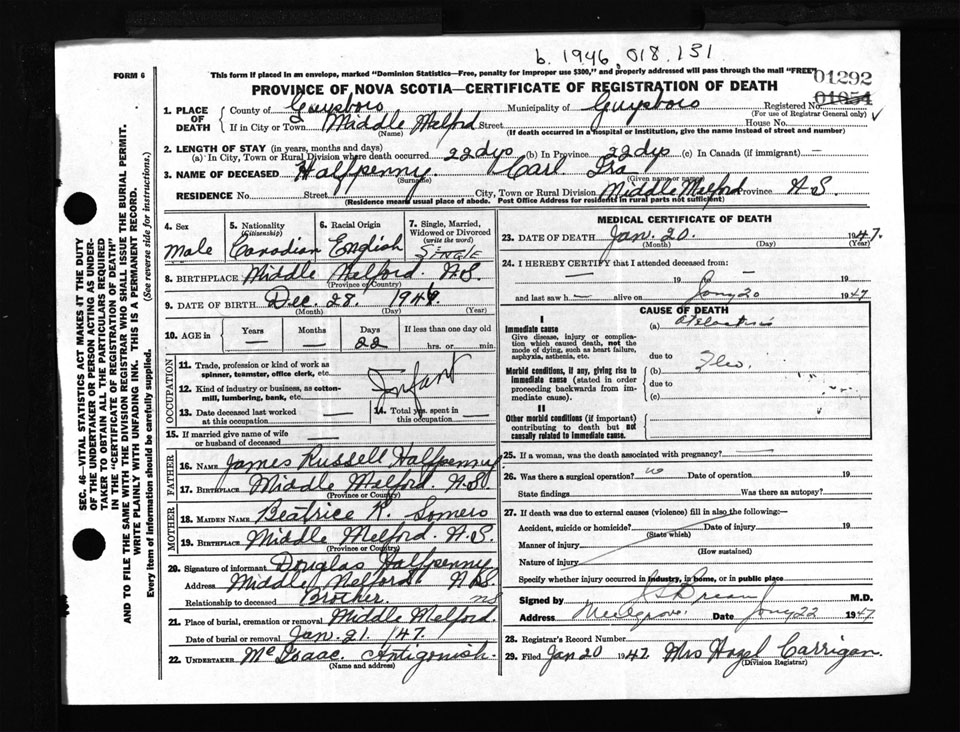 b. 1946, 018. 131
FORM 6
This form if placed in an envelope, marked "Dominion Statistics—Free, penalty for improper use $300," and properly addressed will pass through the mail "FREE"
01292
PROVINCE OF NOVA SCOTIA—CERTIFICATE OF REGISTRATION OF DEATH
01054
1. PLACE OF DEATH County of Guysboro Municipality of Guysboro Registered No.
(For use of Registrar General only) ✓
If in City or Town Middle Melford Street House No.
(Name) (If death occurred in a hospital or institution, give the name instead of street and number)
2. LENGTH OF STAY (in years, months and days)
(a) In City, Town or Rural Division where death occurred 22 dys (b) In Province 22 dys (c) In Canada (if immigrant) —
3. NAME OF DECEASED Halfpenny. Carl Ira
(Surname) (Given name or names)
RESIDENCE No. Street City, Town or Rural Division Middle Melford Province N.S.
(Residence means usual place of abode. Post Office Address for residents in rural parts not sufficient)
4. Sex Male
5. Nationality (Citizenship) Canadian
6. Racial Origin English
7. Single, Married, Widowed or Divorced (write the word) SINGLE
8. BIRTHPLACE Middle Melford. N.S.
(Province or Country)
9. DATE OF BIRTH Dec. 28. 1946.
(Month) (Day) (Year)
10. AGE in Years — Months — Days 22 If less than one day old hrs. or min.
OCCUPATION
11. Trade, profession or kind of work as spinner, teamster, office clerk, etc.
Infant
12. Kind of industry or business, as cotton-mill, lumbering, bank, etc.
13. Date deceased last worked at this occupation —
14. Total yrs. spent in this occupation —
15. If married give name of wife or husband of deceased —
FATHER
16. NAME James Russell Halfpenny
17. BIRTHPLACE Middle Melford. N.S.
(Province or Country)
MOTHER
18. MAIDEN NAME Beatrice R. Somers
19. BIRTHPLACE Middle Melford. N.S.
(Province or Country)
20. Signature of informant Douglas Halfpenny
Address Middle Melford N.S.
Relationship to deceased Brother. ns
21. Place of burial, cremation or removal Middle Melford.
Date of burial or removal Jan. 21. /47.
22. UNDERTAKER McIsaac. Antigonish.
(Name and address)
MEDICAL CERTIFICATE OF DEATH
23. DATE OF DEATH Jan. 20. 1947.
(Month) (Day) (Year)
24. I HEREBY CERTIFY that I attended deceased from:
— 19 — 19
and last saw h — alive on Jany 20 1947
CAUSE OF DEATH
I
Immediate cause (a)
Give disease, injury or complication which caused death, not the mode of dying, such as heart failure, asphyxia, asthenia, etc.
due to
Morbid conditions, if any, giving rise to immediate cause (stated in order proceeding backwards from immediate cause). (b)
due to
(c)
II
Other morbid conditions (if important) contributing to death but not causally related to immediate cause.
25. If a woman, was the death associated with pregnancy? —
26. Was there a surgical operation? no Date of operation 19
State findings Was there an autopsy?
27. If death was due to external causes (violence) fill in also the following:—
Accident, suicide or homicide? Date of injury 19
(State which)
Manner of injury
(How sustained)
Nature of injury
Specify whether injury occurred in industry, in home, or in public place
Signed by M.D.
Address Mulgrave. Date Jany 22 1947
28. Registrar's Record Number
29. Filed Jan 20 1947. Mrs Hazel Carrigan.
(Division Registrar)
SEC. 46—VITAL STATISTICS ACT MAKES IT THE DUTY
OF THE UNDERTAKER OR PERSON ACTING AS UNDER-
TAKER TO OBTAIN ALL THE PARTICULARS REQUIRED
IN THE "CERTIFICATE OF REGISTRATION OF DEATH"
AND TO FILE THE SAME WITH THE DIVISION REGISTRAR WHO SHALL ISSUE THE BURIAL PERMIT.
WRITE PLAINLY WITH UNFADING INK. THIS IS A PERMANENT RECORD.
Every item of information should be carefully supplied. (See reverse side for instructions.)